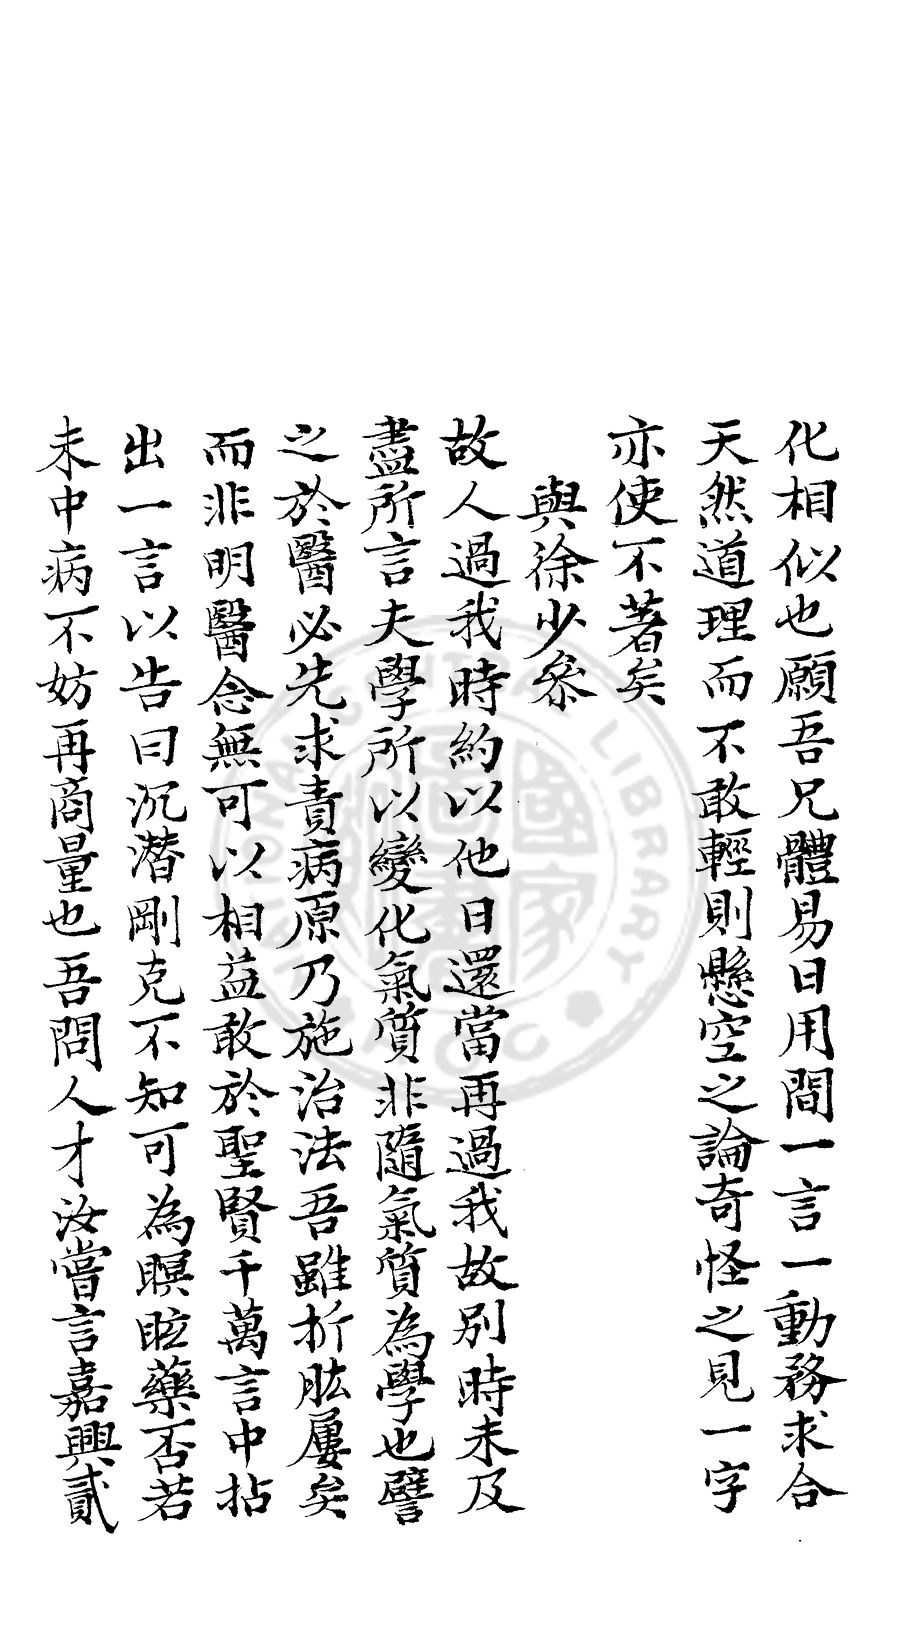 化相似也願吾兄體易日用間一言一動務求合
天然道理而不敢輕則懸空之論奇怪之見一字
亦使不著矣
與徐少參
故人過我時約以他日還當再過我故別時未及
盡所言夫學所以變化氣質非隨氣質為學也譬
之於醫必先求責病原乃施治法吾雖折肱屢矣
而非明醫念無可以相益敢於聖賢千萬言中拈
出一言以告曰沉潛剛克不知可為瞑眩藥否若
未中病不妨再商量也吾問人才汝嘗言嘉興貳